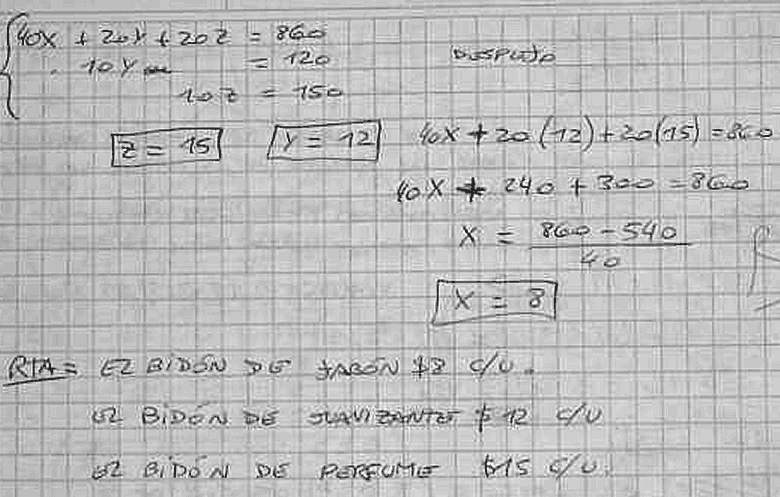 40X + 20Y + 20Z = 860
10Y = 120
DESPEJO
10Z = 150
Z = 15
Y = 12
40X + 20(12) + 20(15) = 860
40X + 240 + 300 = 860
X = 860 - 540
40
X = 8
RTA = EL BIDÓN DE JABÓN $8 C/U.
EL BIDÓN DE SUAVIZANTE $12 C/U
EL BIDÓN DE PERFUME $15 C/U.